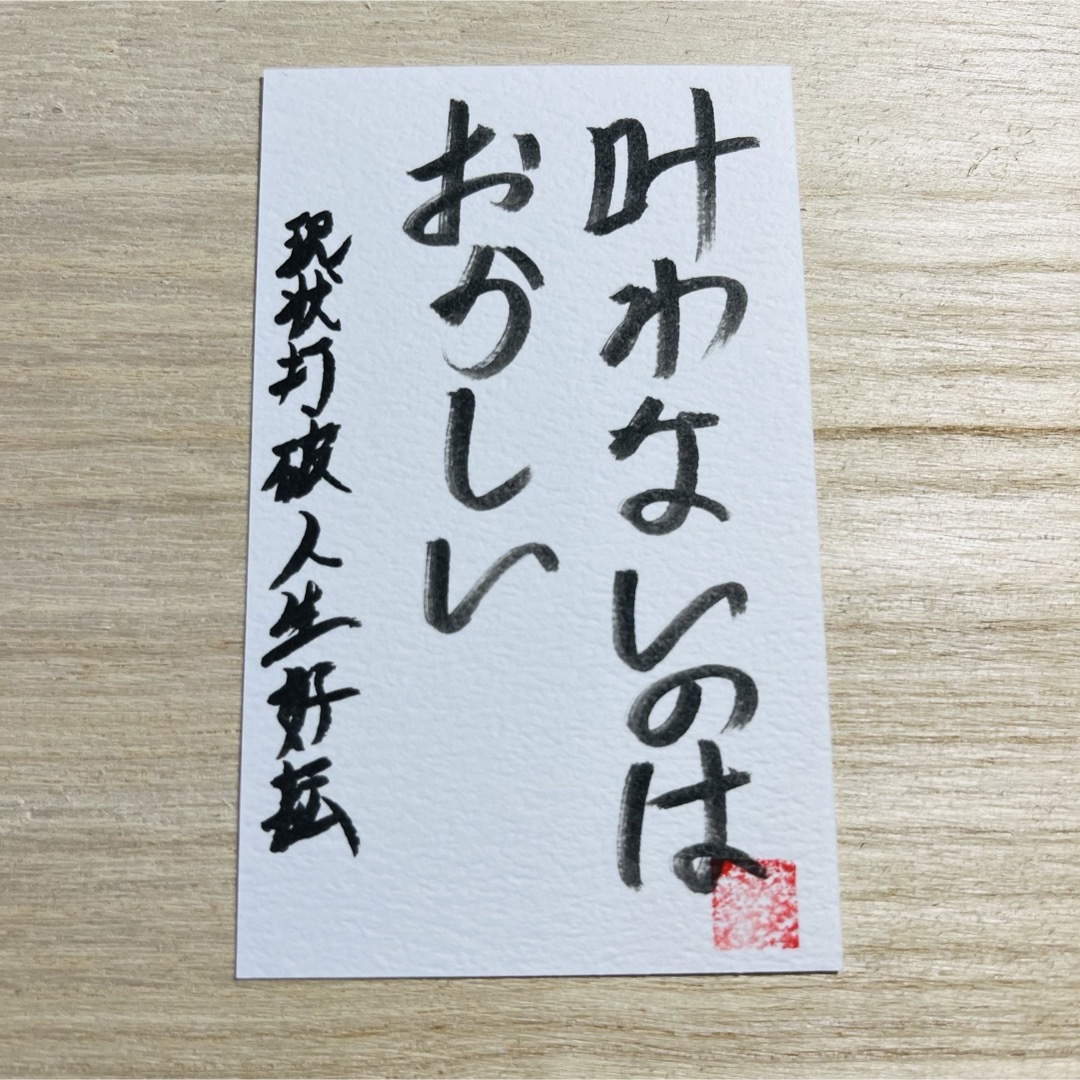 叶わないのは
おかしい
現状打破人生好転